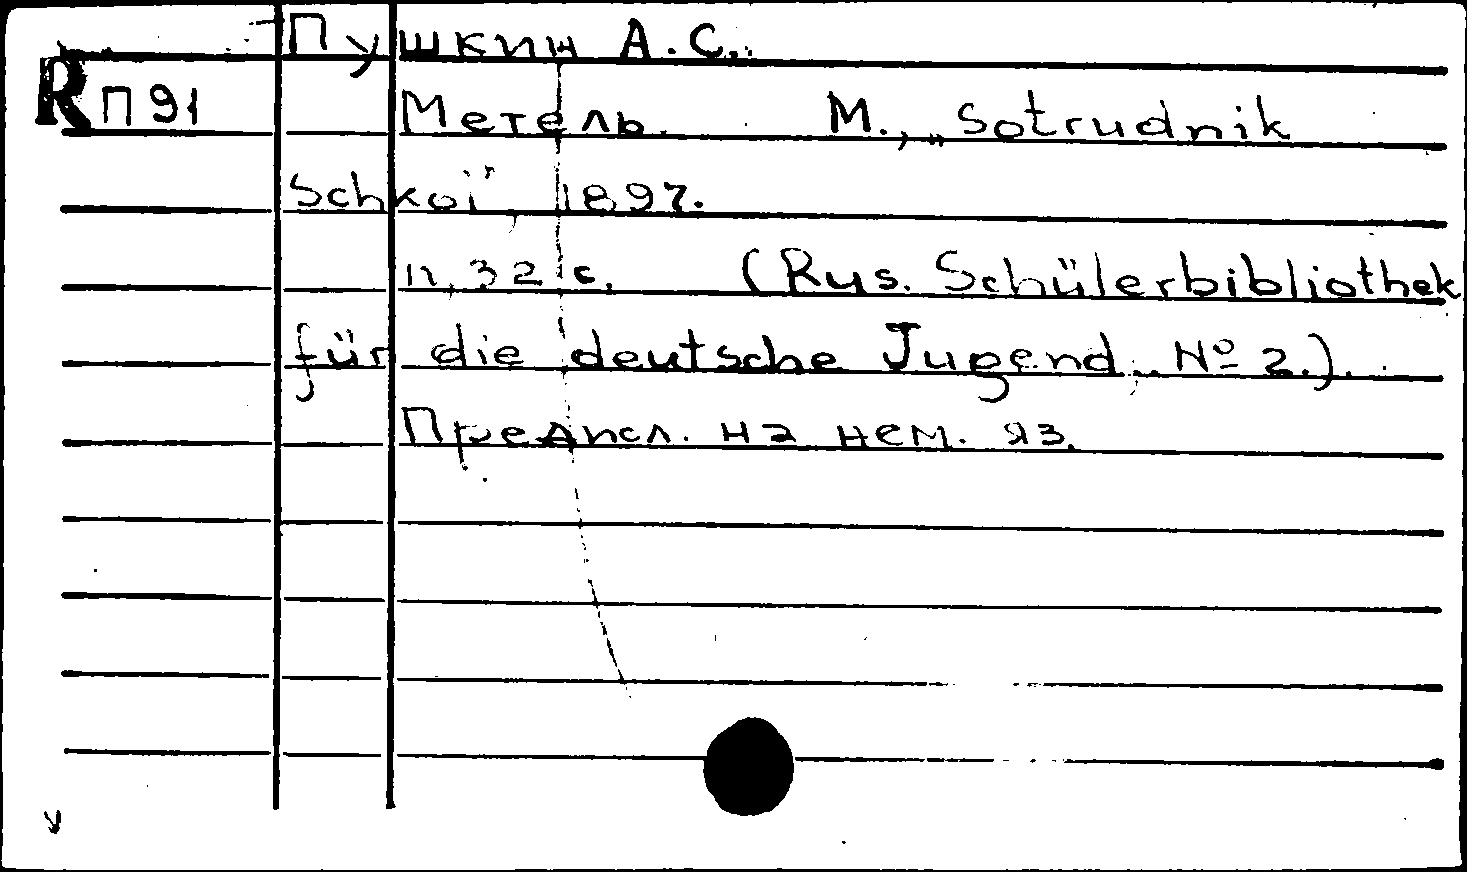 Пушкин А.С.
R П 91
Метель. М., „Sotrudnik
Schkoï", 1897.
II, 32 с. (Rus. Schülerbibliothek
für die deutsche Jugend, № 2.).
Предисл. на нем. яз.
v